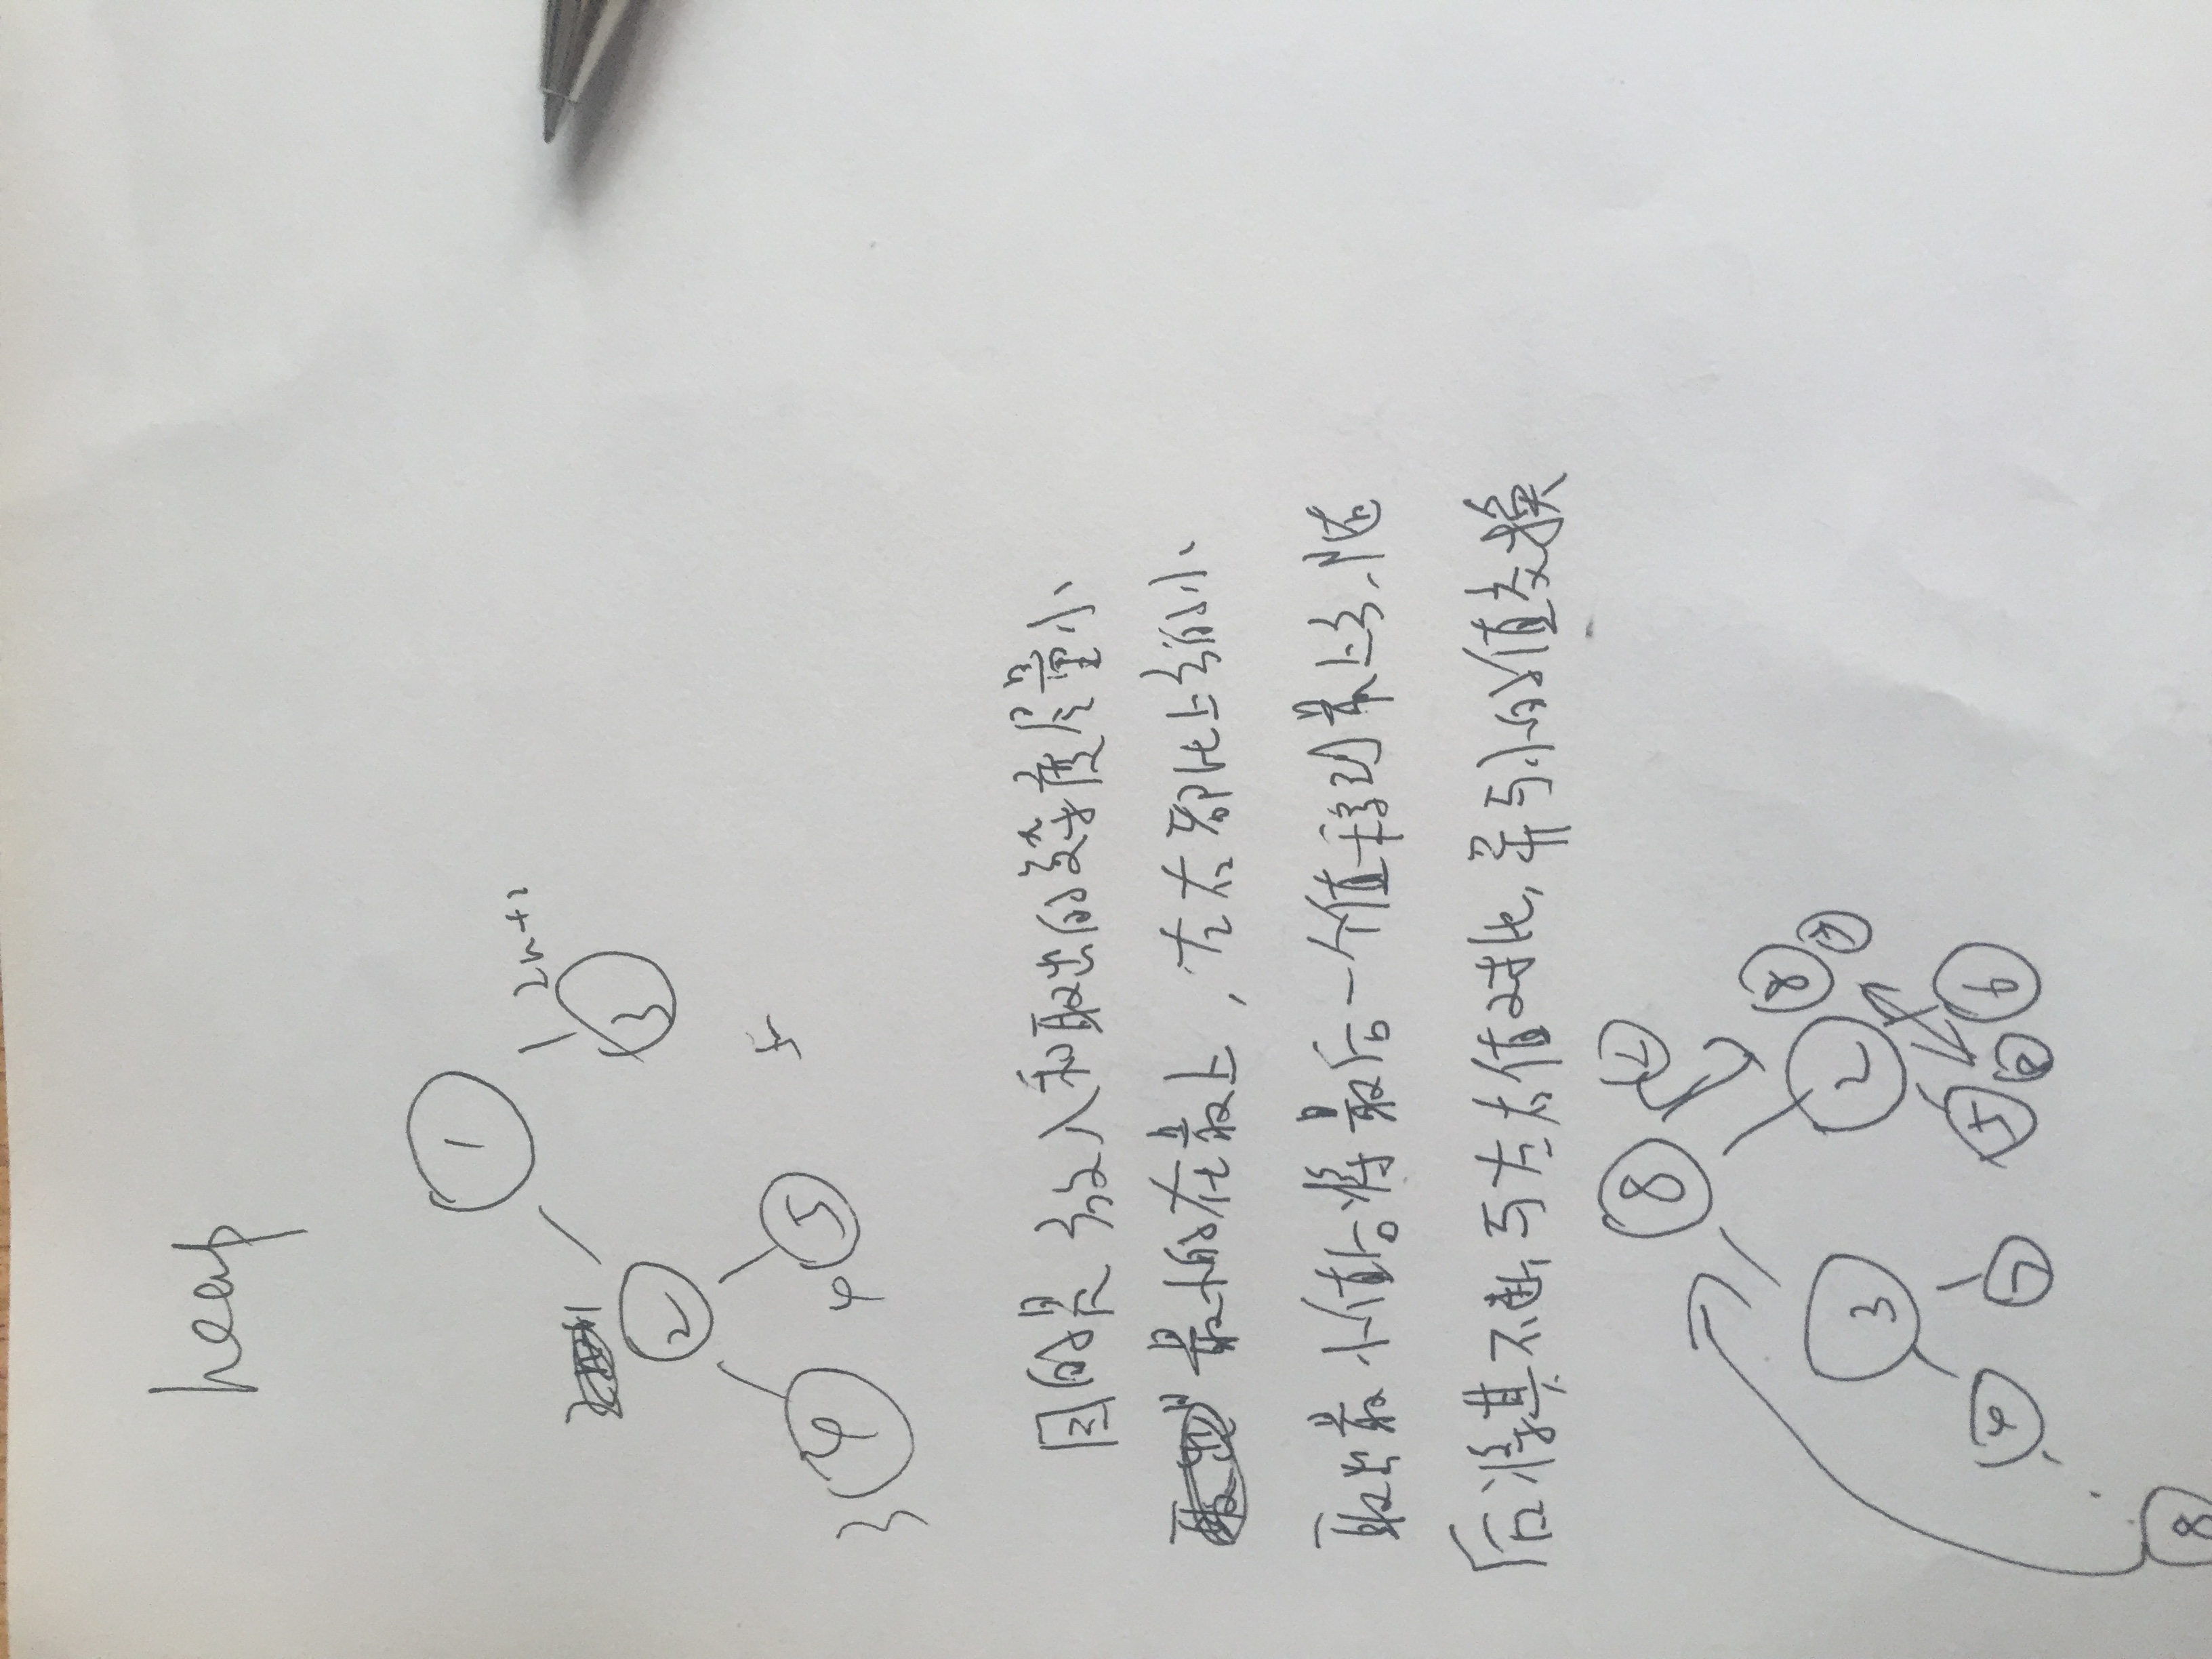 heap
1
2n+2
2
3
3 4 4 5 5
目的是放入和取出的复杂度尽量小
最小的在最上,左右都比上面的小
取出最小值后将最后一个值移到最上面,随
后将其不断与左右值对比,并与小的值交换
8 2
3 2 8
4 7 5 6
8